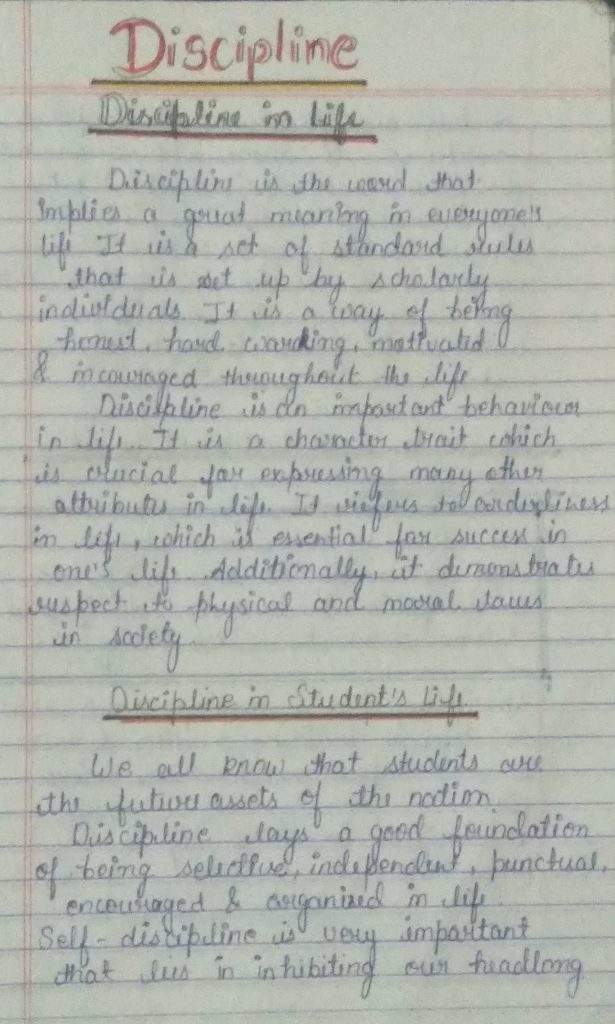 Discipline
Discipline in Life
Discipline is the word that
implies a great meaning in everyone's
life It is a set of standard rules
that is set up by scholarly
individuals. It is a way of being
honest, hard-working, motivated
& incouraged throughout the life
Discipline is an important behaviour
in life. It is a character trait which
is crucial for expressing many other
attributes in life. It refers to orderliness
in life, which is essential for success in
one's life. Additionally, it demonstrates
respect to physical and moral laws
in society
Discipline in Student's Life
We all know that students are
the future assets of the nation
Discipline lays a good foundation
of being selective, independent, punctual,
encouraged & organized in life.
Self-discipline is very important
that lies in inhibiting our headlong